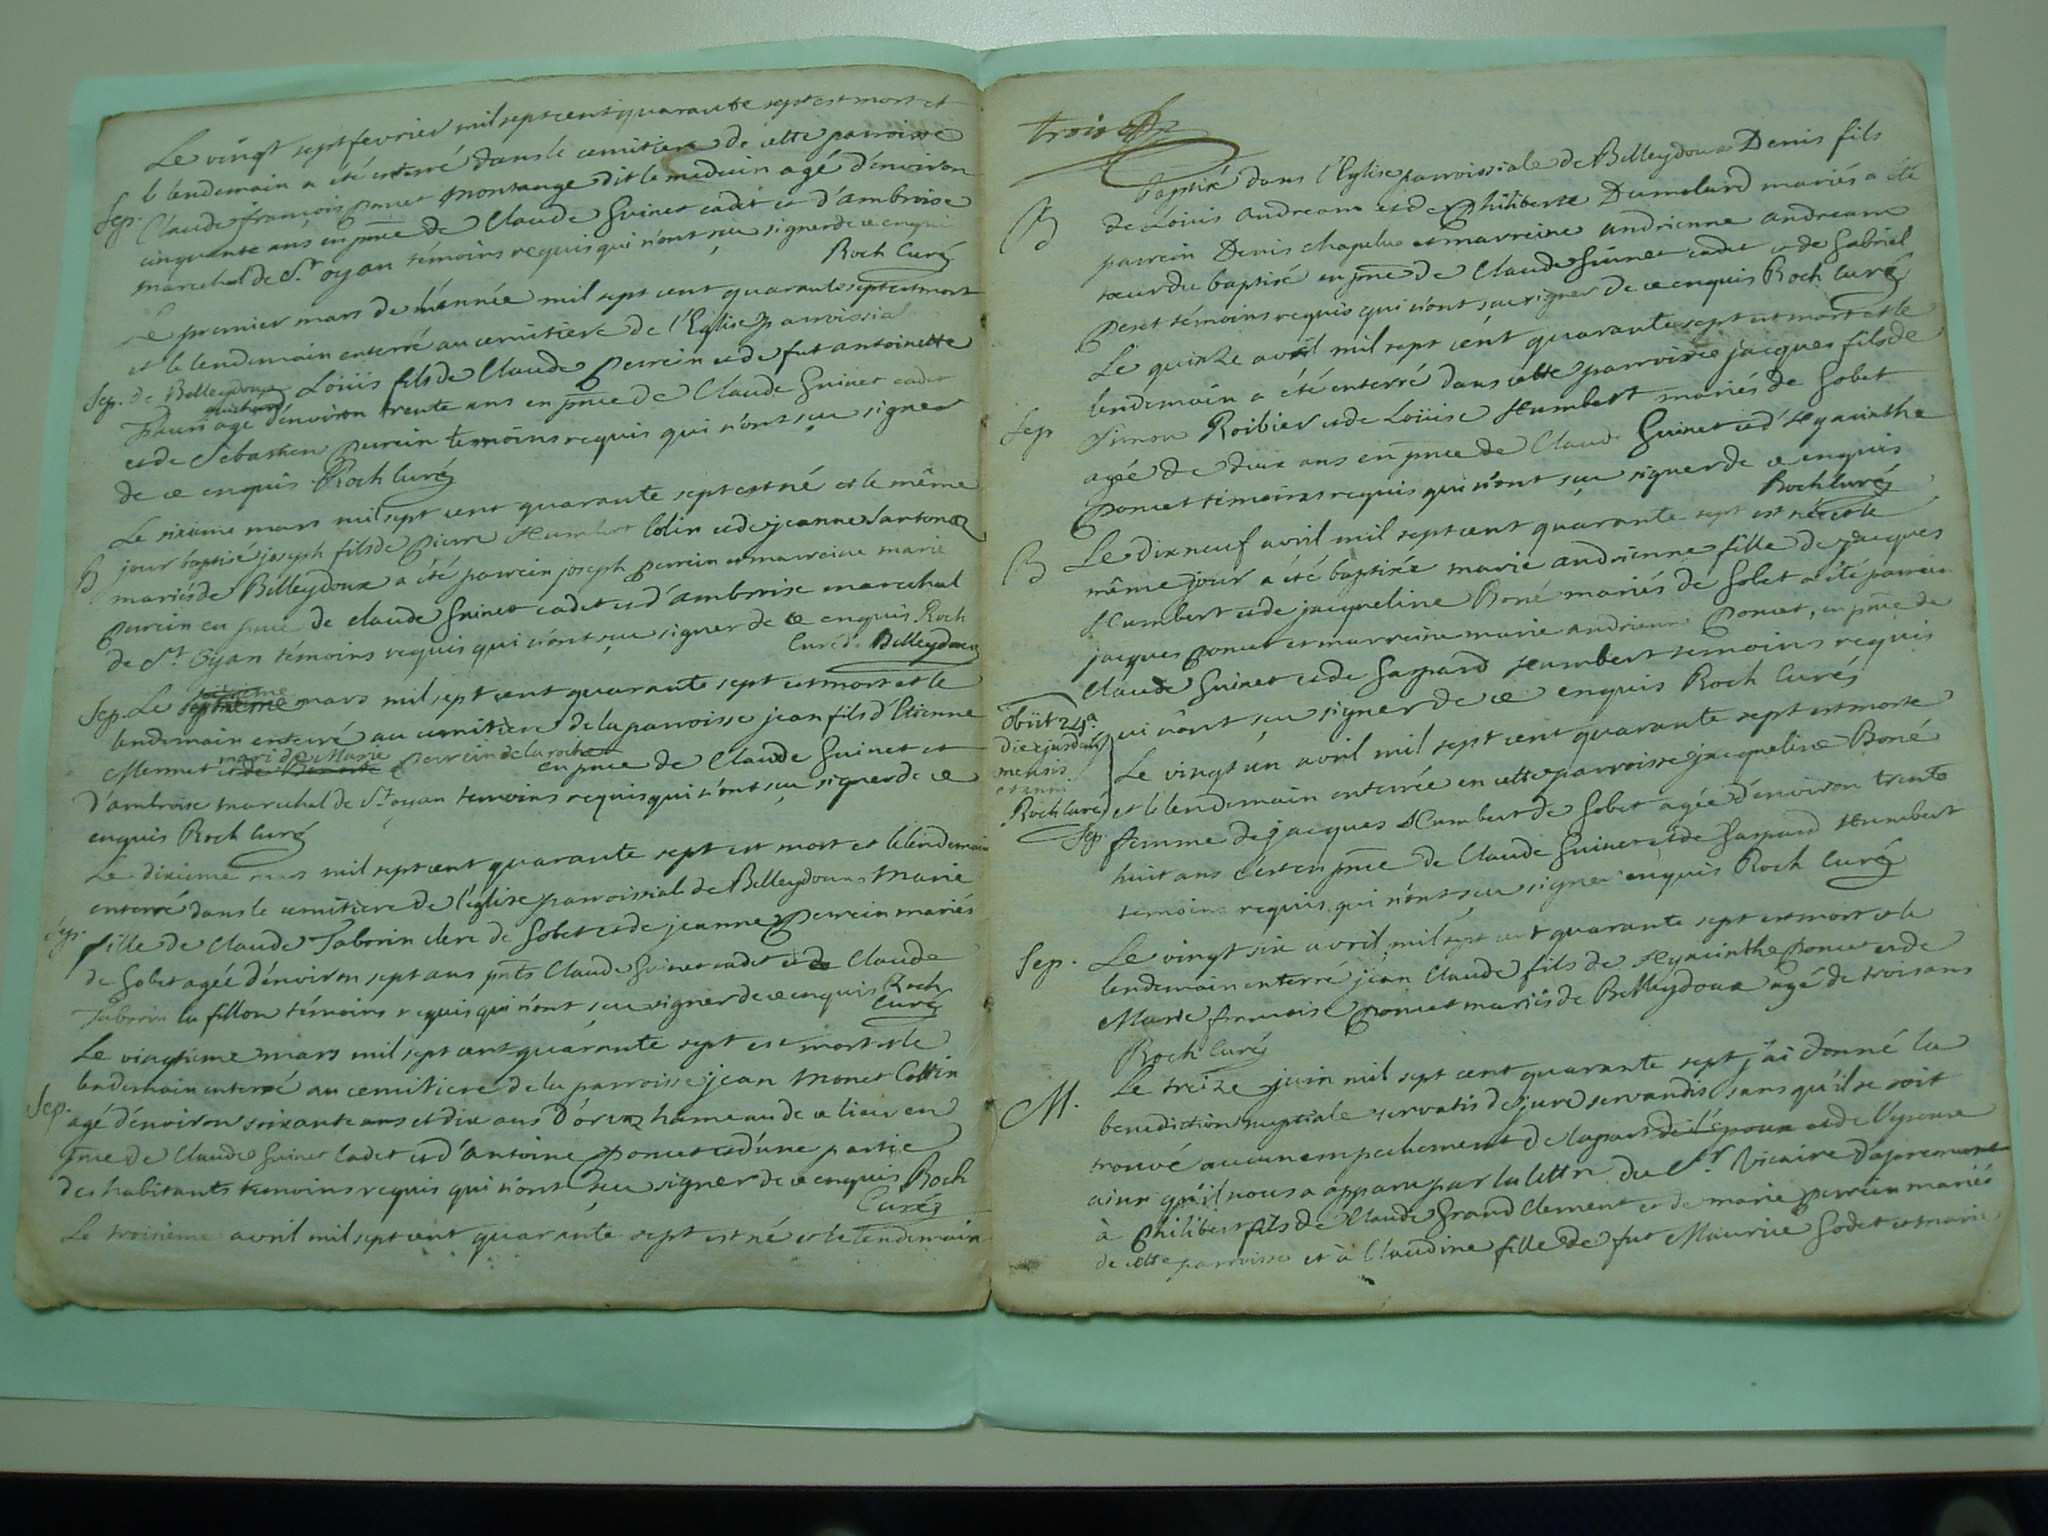 Le vingt sept fevrier mil sept cent quarante sept est mort et
le lendemain a été enterré dans le cemitiere de cette parroisse
Sep. Claude françois poncet montange dit le medecin agé d'environ
cinquante ans en pnce de Claude Guinet cadet et d'ambroise
marechal de St oyan témoins requis qui n'ont sçu signer de ce enquis
Roch Curé
Le premier mars de l'année mil sept cent quarante sept est mort
et le lendemain enterré au cemitiere de l'Eglise parroissial
Sep. de Belleydoux Loüis fils de Claude perrein et de fut antoinette
agé d'environ trente ans en pnce de Claude Guinet cadet
et de Sebastien perrein temoins requis qui n'ont sçu signer
de ce enquis Roch Curé
Le sixieme mars mil sept cent quarante sept est né et le même
B jour baptisé joseph fils de pierre Humbert Colin et de jeanne
mariés de Belleydoux a été parrein joseph perrein et marreine marie
perrein en pnce de claude Guinet cadet et d'ambroise marechal
de St. Oyan témoins requis qui n'ont sçu signer de ce enquis Roch
Curé de Belleydoux
Sep. Le mars mil sept cent quarante sept est mort et le
lendemain enterré au cemitiere de la parroisse jean fils d'Etienne
mari de Marie perrein de la roche
Mermet en pnce de Claude Guinet et
d'ambroise marechal de St oyan temoins requis qui n'ont sçu signer de ce
enquis Roch Curé
Le dixieme mars mil sept cent quarante sept est mort et le lendemain
enterré dans le cemitiere de l'église parroissiale de Belleydoux Marie
Sep. fille de Claude Tabourin clerc de Gobet et de jeanne perrein mariés
de Gobet agée d'environ sept ans pnts Claude Guinet cadet et de Claude
la fillon témoins requis qui n'ont sçu signer de ce enquis Roch
Curé
Le vingtieme mars mil sept cent quarante sept est mort et le
lendemain enterré au cemitiere de la parroisse jean monet Cottin
Sep. agé d'environ soixante ans et dix ans hameau de ce lieu en
pnce de Claude Guinet Cadet et d'Antoine poncet et d'une partie
des habitants temoins requis qui n'ont sçu signer de ce enquis Roch
Curé
Le troisieme avril mil sept cent quarante sept est né et le lendemain
trois
baptisé dans l'Eglise parroissiale de Belleydoux Denis fils
B de Loüis andreane et de philiberte Dumolard mariés a été
parrein Denis chapelu et marreine andrienne andreane
sœur du baptisé en pnce de Claude Guinet cadet et de Gabriel
témoins requis qui n'ont sçu signer de ce enquis Roch Curé
Le quinze avril mil sept cent quarante sept est mort et le
lendemain a été enterré dans cette parroisse jacques fils de
Sep Simon Roibier et de Loüise Humbert mariés de Gobet
agée de deux ans en pnce de Claude Guinet et d'Hyacinthe
poncet témoins requis qui n'ont sçu signer de ce enquis
Roch Curé
B Le dix neuf avril mil sept cent quarante sept est née et le
même jour a été baptisée marie andrienne fille de jacques
Humbert et de jacqueline Boné mariés de Gobet a été parrein
jacques poncet et marreine marie andrienne poncet, en pnce de
Claude Guinet et de Gaspard Humbert temoins requis
qui n'ont sçu signer de ce enquis Roch Curé
obiit 24a
die ejusdem
mensis
et anni
Roch Curé
Le vingt un avril mil sept cent quarante sept est morte
et le lendemain enterrée en cette parroisse jacqueline Boné
Sep. femme de jacques Humbert de Gobet agée d'environ trente
huit ans c'est en pnce de Claude Guinet et de Gaspard Humbert
temoins requis qui n'ont sçu signer enquis Roch Curé
Sep. Le vingt six avril mil sept cent quarante sept est mort et le
lendemain enterré jean Claude fils de Hyacinthe poncet et de
Marie françoise poncet mariés de Belleydoux agé de trois ans
Roch Curé
M. Le treize juin mil sept cent quarante sept j'ai donné la
benediction nuptiale servatis de jure servandis sans qu'il se soit
trouvé aucun empechement de la part de l'époux et de l'epouse
ainsi qu'il nous a apparu par la lettre du Sr Vicaire D'apremont
à philibert fils de Claude Grand Clement et de marie perrein mariés
de cette parroisse et à Claudine fille de fut Maurice Godet et marie